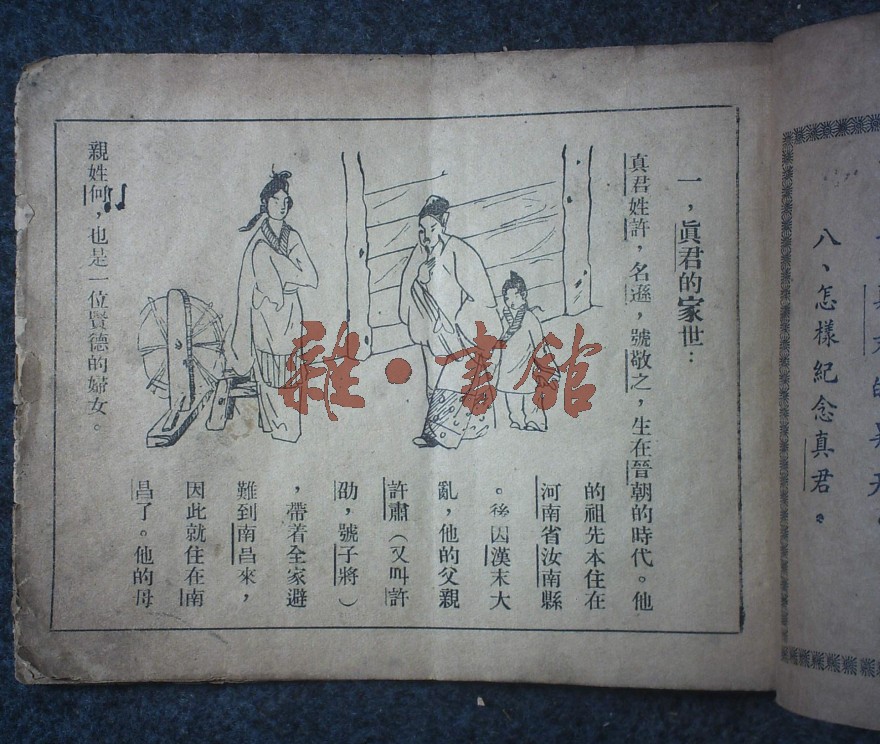 八、怎樣紀念真君。
一，眞君的家世：
真君姓許，名遜，號敬之，生在晉朝的時代。他
的祖先本住在
河南省汝南縣
。後因漢末大
亂，他的父親
許肅（又叫許
劭，號子將）
，帶着全家避
難到南昌來，
因此就住在南
昌了。他的母
親姓何，也是一位賢德的婦女。
雜·書館